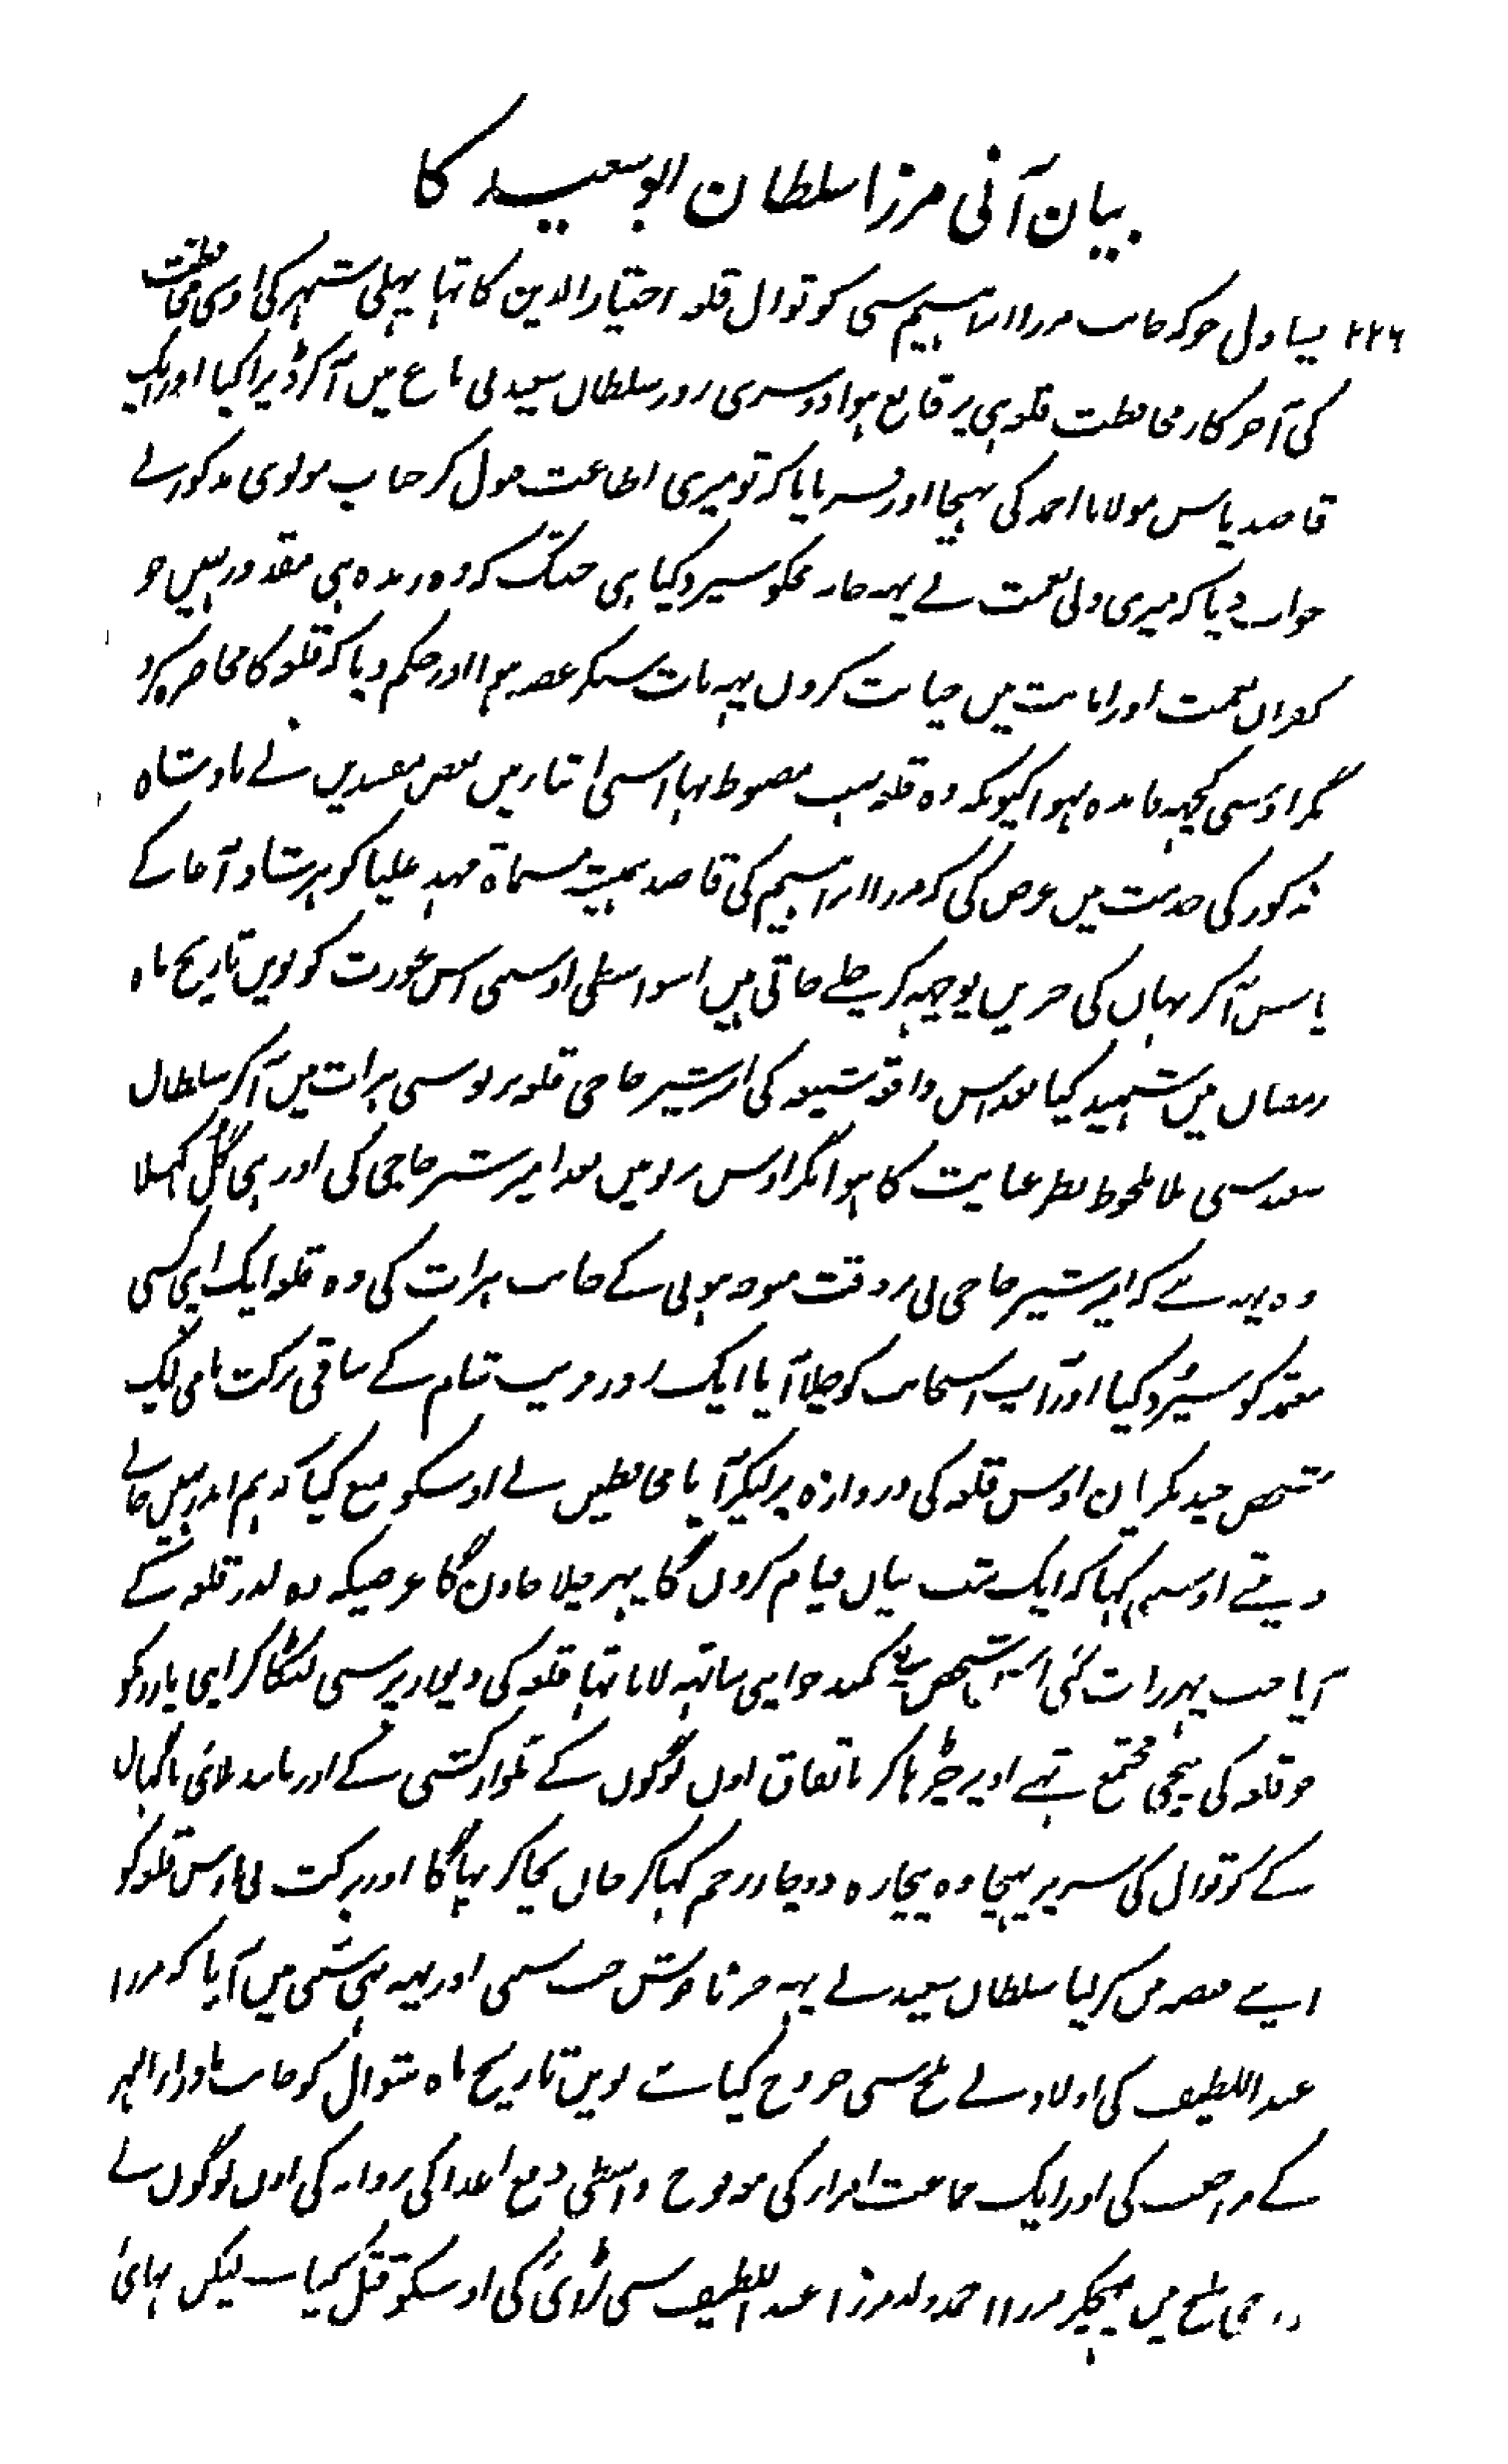 بیان آنی مرزا سلطان ابو سعید کا
۲۲۶ یساول جوکہ جانب مرزا ابراہیم سی کوتوال قلعہ اختیار الدین کا تہا پہلی شہر کی اوسی محافظت
کی آخر کار محافظت قلعہ ہی پر قانع ہوا دوسری روز سلطان سعید نی باغ میں آکر ڈیرا کیا اور ایک
قاصد پاس مولانا احمد کی بہیجا اور فرمایا کہ تو میری اطاعت قبول کر جناب مولوی مذکور نے
جواب دیا کہ میری ولی نعمت نے یہہ خانہ مجکو سپرد کیا ہی جبتک کہ وہ زندہ ہی مقدور نہیں جو
کفران نعمت اور امانت میں خیانت کروں یہہ بات سنکر غصہ ہوا اور حکم دیا کہ قلعہ کا محاصرہ کرو
مگر اوسی کچہہ فائدہ نہوا کیونکہ وہ قلعہ بہت مضبوط تہا اسی اثنا میں بعض مفسدین نے بادشاہ
مذکور کی خدمت میں عرض کی کہ مرزا ابراہیم کی قاصد ہمیشہ مسماۃ مہد علیا کوہرشاد آغا کے
پاس آکر یہاں کی خبریں پوچہہ کر چلے جاتی ہیں اسواسطی اوسی اس عورت کو نویں تاریخ ماہ
رمضان میں شہید کیا بعد اس واقعہ شنیعہ کی امیر شیر حاجی قلعہ پر توسی ہرات میں آکر سلطان
سعید سی ملا ملحوظ نظر عنایت کا ہوا مگر اوس برلو میں بعد امیر شیر حاجی کی اور ہی گل کہلا
وہ یہہ ہے کہ امیر شیر حاجی نی بر وقت متوجہ ہونی کے جانب ہرات کی وہ قلعہ ایک اپنی کسی
معتمد کو سپرد کیا اور آپ اسجانب کو چلا آیا ایک روز قریب شام کے ساقی برکت نامی ایک
شخص چند بکریاں اوس قلعہ کی دروازہ پر لیکر آیا محافظین نے اوسکو منع کیا کہ ہم اندر نہیں جانے
دیتے اوسی کہا کہ ایک شب یہاں قیام کروں گا پہر چلا جاون گا غرضیکہ وہ اندر قلعہ کے
آیا جب پہر رات گئی اس شخص نے کمند جو اپنی ساتہہ لایا تہا قلعہ کی دیوار پر سی لٹکا کر اپنی یارونکو
جو قلعہ کی نیچی مجتمع تہے اوپر چڑہا کر باتفاق اون لوگوں کے تلوار کشی کے اور مانند بلائی ناگہانی
کے کوتوال کی سر پر پہنچا وہ بیچارہ دو چار زخم کہا کر جان بچا کر بہاگا اور برکت نی اوس قلعہ کو
اپنے قبضہ میں کر لیا سلطان سعید نے یہہ خبر ناخوش جب سنی اور یہہ بہی سنی میں آیا کہ مرزا
عبد اللطیف کی اولاد نے بلخ سی خروج کیا تب نویں تاریخ ماہ شوال کو جانب ماوراء النہر
کے مراجعت کی اور ایک جماعت امراء کی موضوع واسطی دفع اعدا کی روانہ کی اون لوگوں نے
نواحی بلخ میں پہنچکر مرزا احمد ولد مرزا عبد اللطیف سی لڑائی کی اوسکو قتل کیا لیکن بہائی